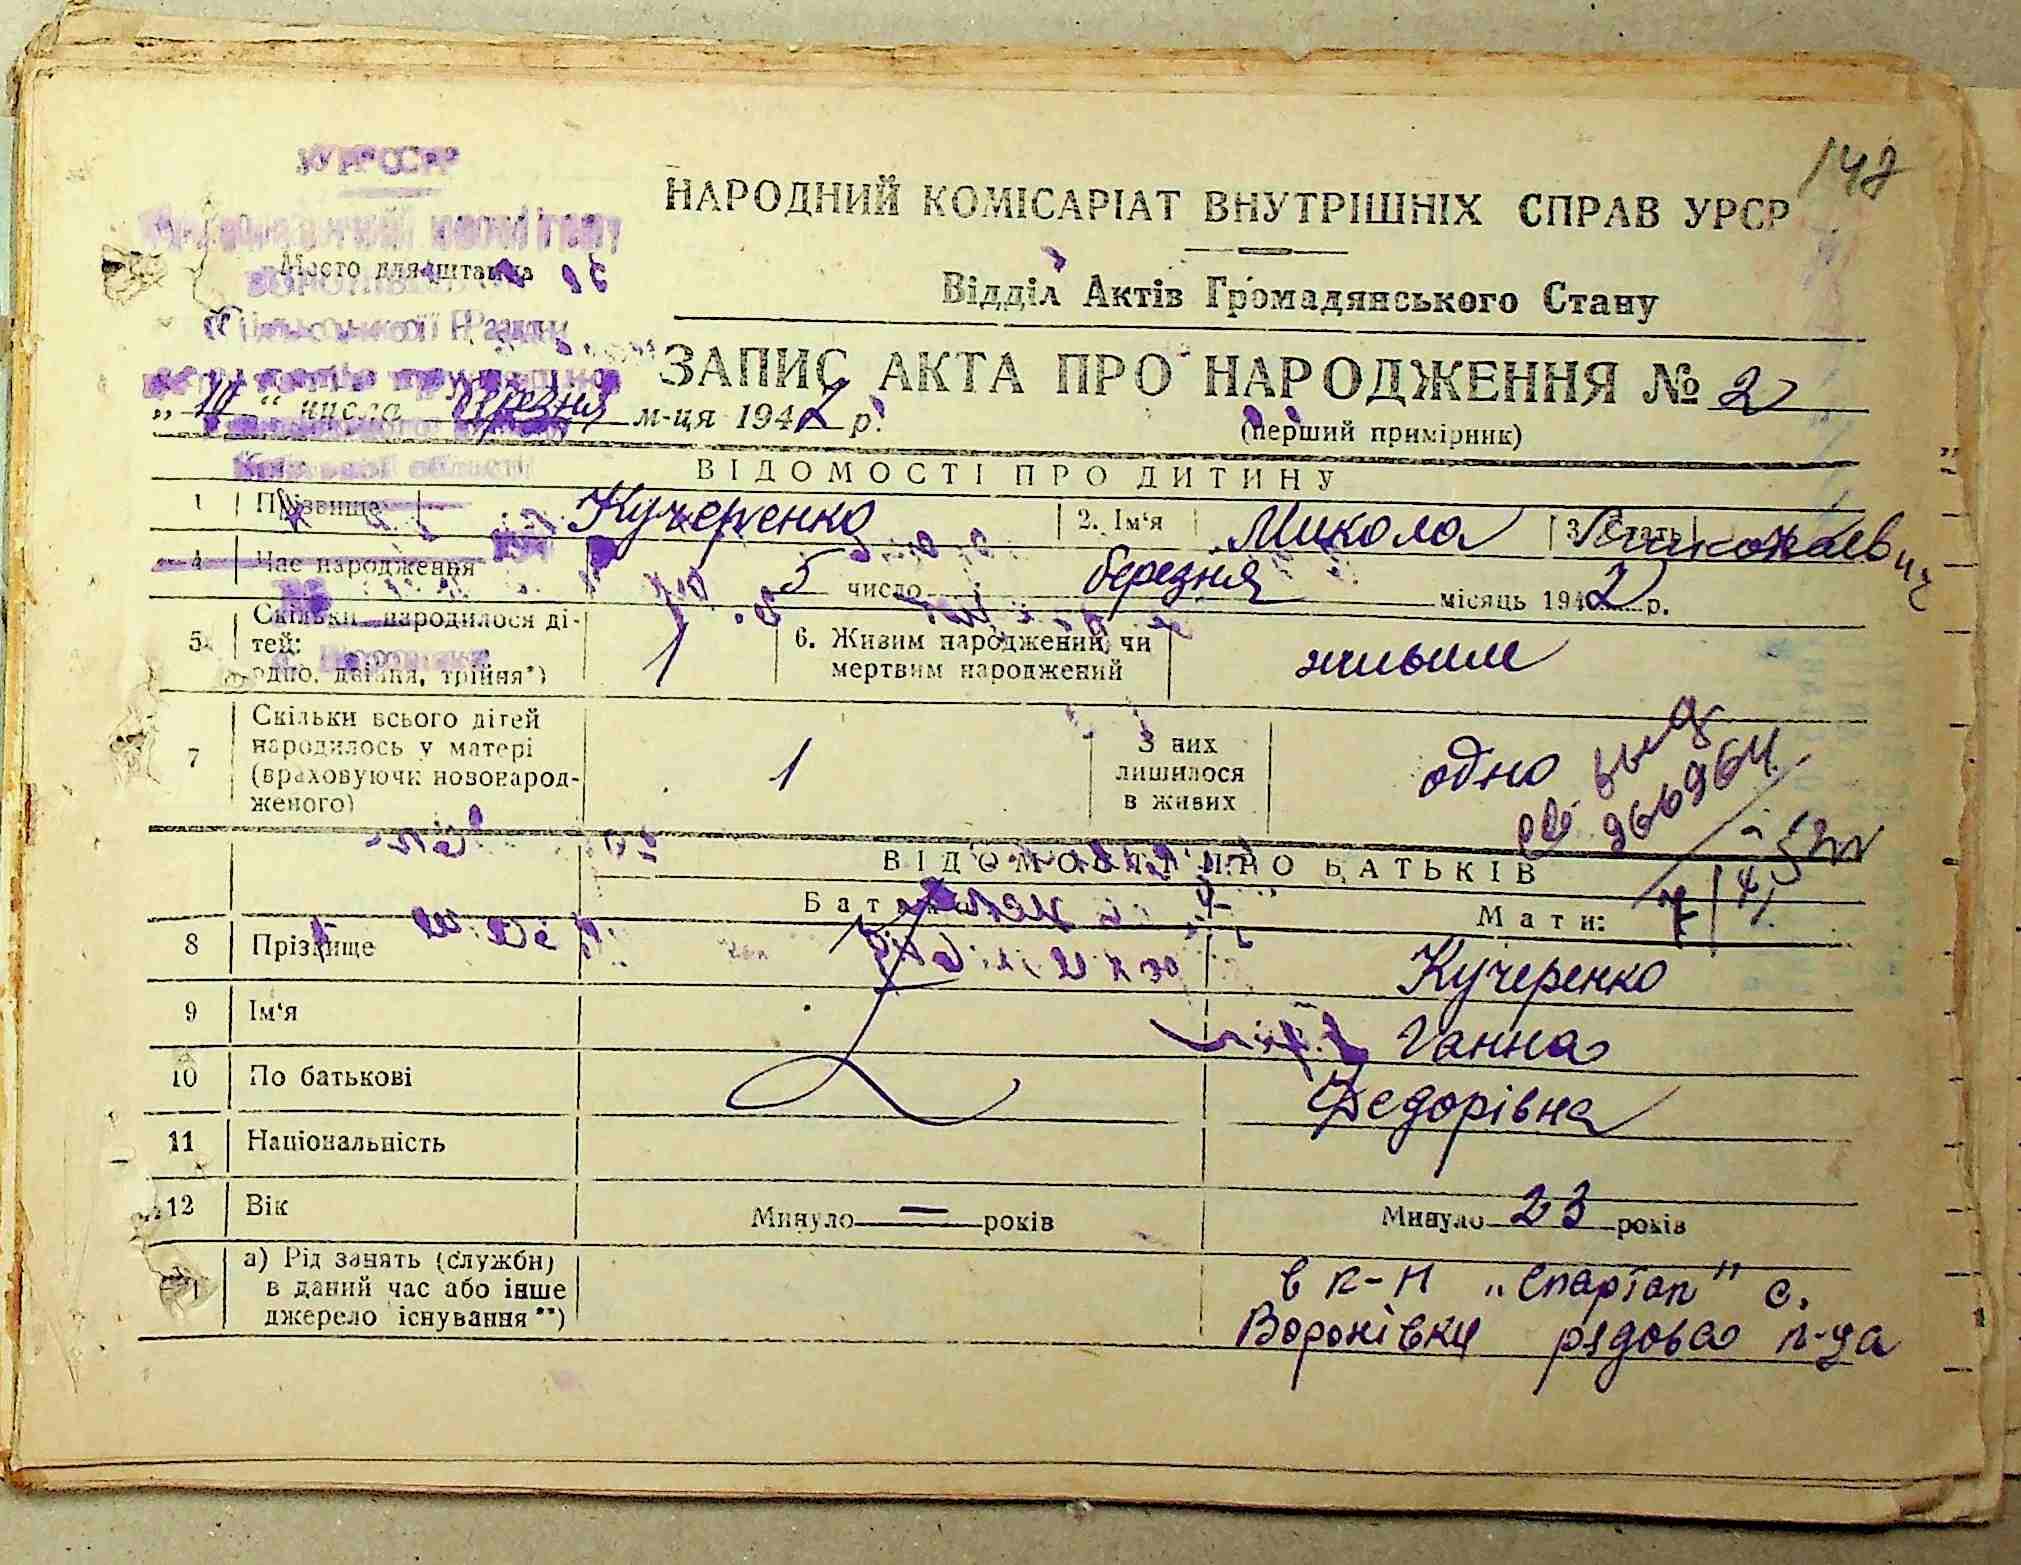 УРСР
142
НАРОДНИЙ КОМІСАРІАТ ВНУТРІШНІХ СПРАВ УРСР
Место для штампа
Відділ Актів Громадянського Стану
ЗАПИС АКТА ПРО НАРОДЖЕННЯ № 2
„10“ числа березня м-ця 1942 р.
(перший примірник)
ВІДОМОСТІ ПРО ДИТИНУ
1 Прізвище Кучеренко 2. Ім‘я Микола 3. Стать Миколаевич
4 Час народження 5 число березня місяць 1942 р.
5. Скільки народилося ді-
тей:
одно, двійня, трійня*) 1
6. Живим народжений, чи
мертвим народжений живим
7 Скільки всього дітей
народилось у матері
(враховуючи новонарод-
женого) 1
З них
лишилося
в живих одно
ВІДОМОСТІ ПРО БАТЬКІВ
Батько Мати:
8 Прізвище Кучеренко
9 Ім‘я Ганна
10 По батькові Федорівна
11 Національність
12 Вік Минуло — років Минуло 23 років
а) Рід занять (служби)
в даний час або інше
джерело існування**)
в к-п „Спартак" с.
Воронівки рядова к-ца